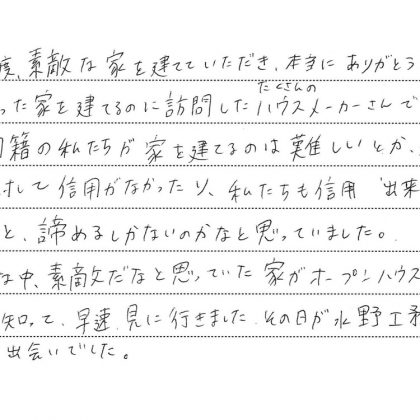 度、素敵な家を建てていただき、本当にありがとう
った家を建てるのに訪問したたくさんのハウスメーカーさんで
国籍の私たちが家を建てるのは難しいとか、
対して信用がなかったり、私たちも信用出来
と、諦めるしかないのかなと思っていました。
な中、素敵だなと思っていた家がオープンハウス
知って、早速、見に行きました。その日が水野工務
出会いでした。